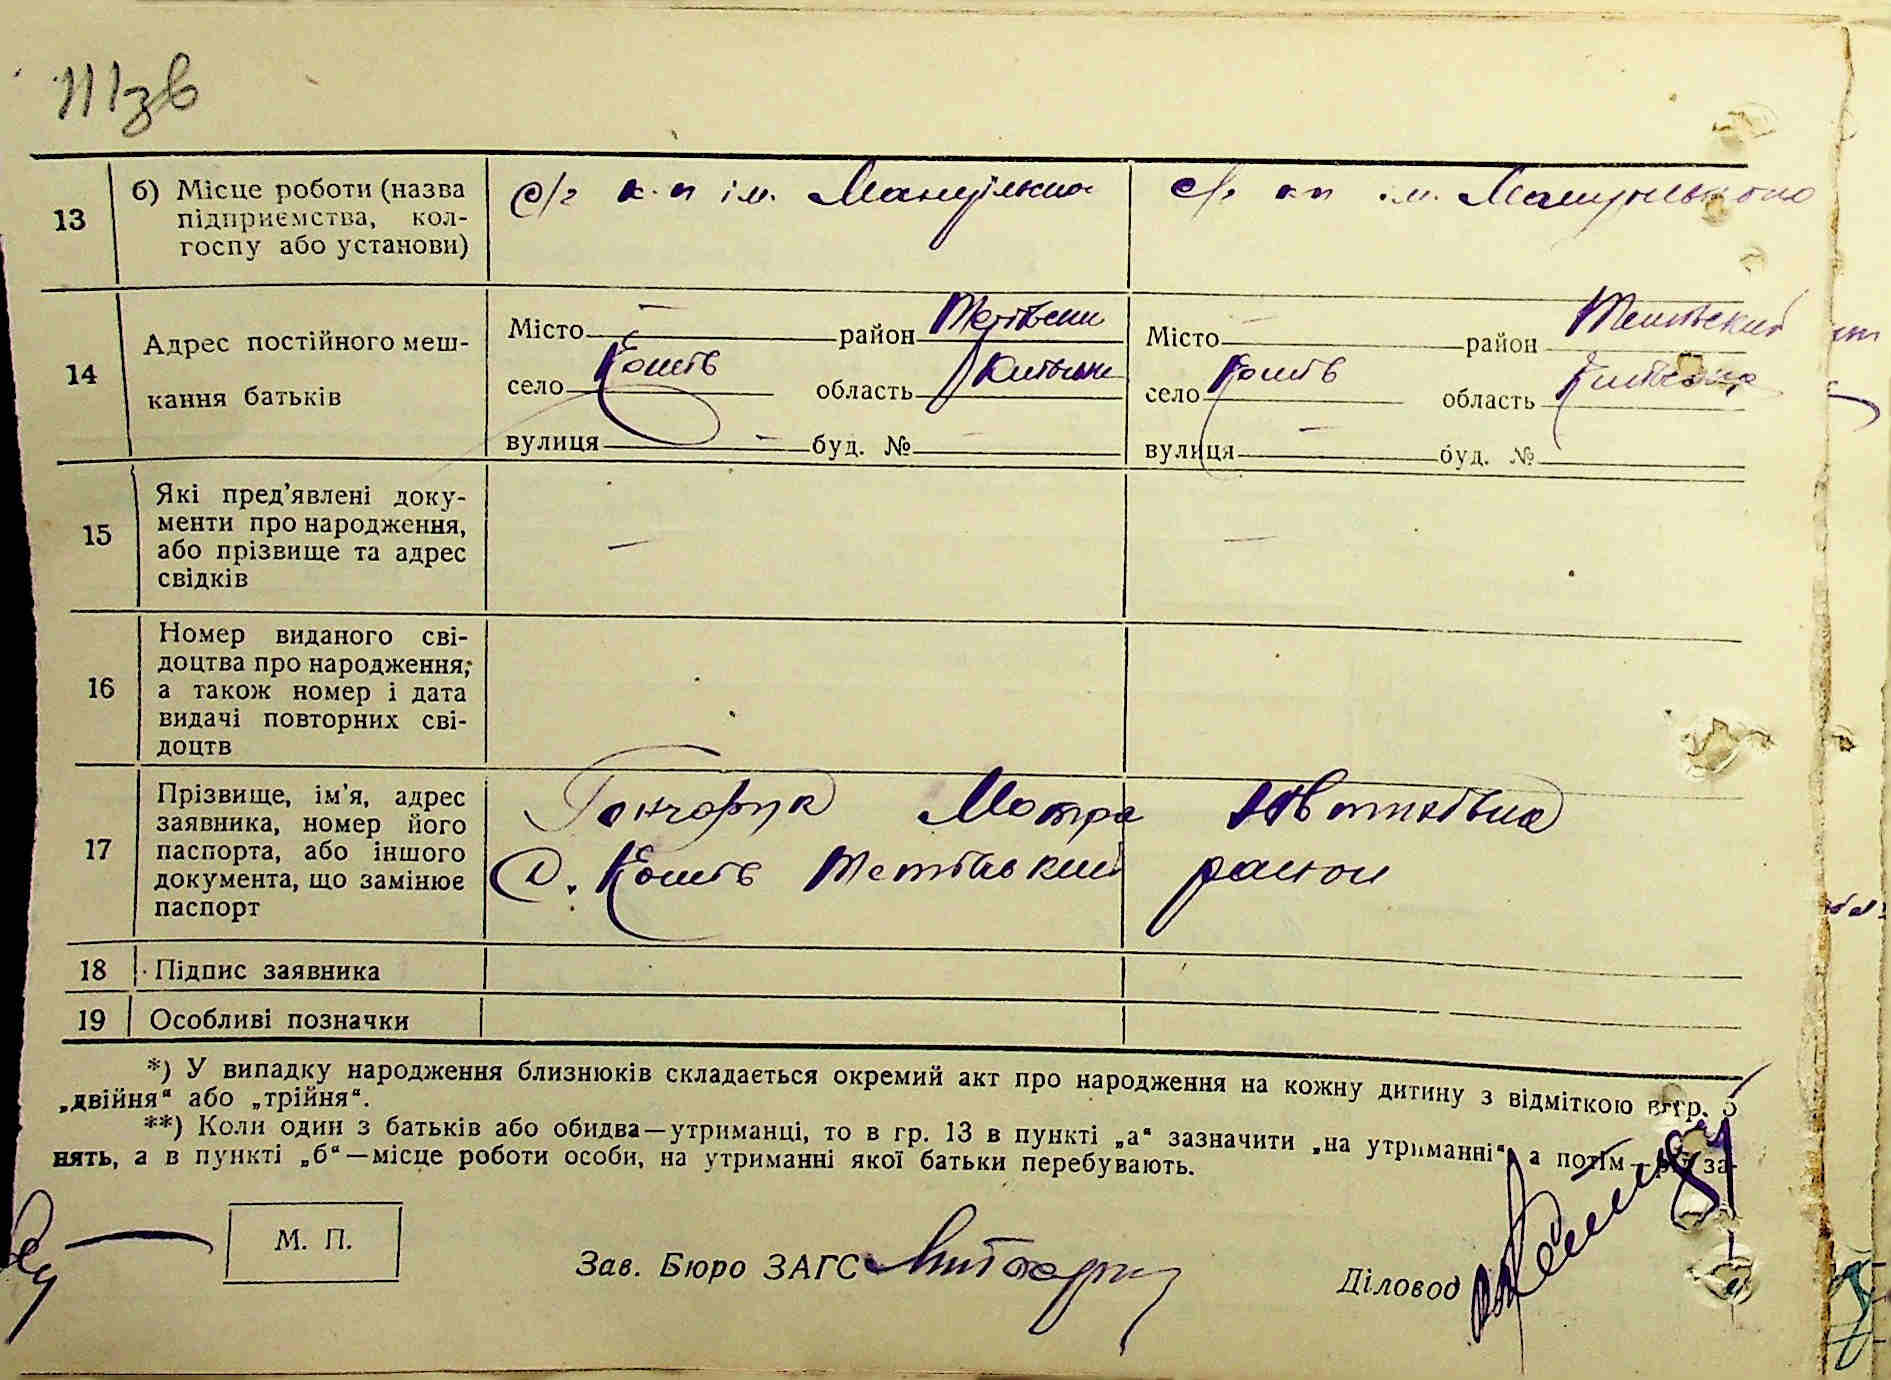 13 б) Місце роботи (назва
підприємства, кол-
госпу або установи)
с/г к-п ім. с/г кп ім. Мануїльського
14 Адрес постійного меш-
кання батьків
Місто — район Тетіївськ Місто — район Тетіївський
село Кошів область Київськ село Кошів область Київська
вулиця — буд. № — вулиця — буд. №
15 Які пред'явлені доку-
менти про народження,
або прізвище та адрес
свідків
— —
16 Номер виданого сві-
доцтва про народження,
а також номер і дата
видачі повторних сві-
доцтв
17 Прізвище, ім'я, адрес
заявника, номер його
паспорта, або іншого
документа, що замінює
паспорт
Гончарук Мотра
с. Кошів Тетіївський район
18 Підпис заявника
19 Особливі позначки
*) У випадку народження близнюків складається окремий акт про народження на кожну дитину з відміткою в гр. 5
„двійня“ або „трійня“.
**) Коли один з батьків або обидва—утриманці, то в гр. 13 в пункті „а“ зазначити „на утриманні“, а потім
нять, а в пункті „б“—місце роботи особи, на утриманні якої батьки перебувають.
М. П.
Зав. Бюро ЗАГС
Діловод